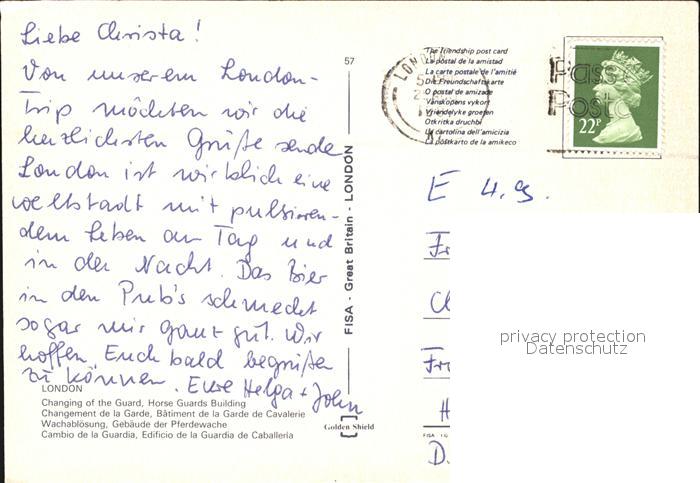 Liebe Christa!
Von unserem London-
Trip möchten wir die
herzlichsten Grüße sende
London ist wirklich eine
Weltstadt mit pulsieren-
dem Leben am Tag und
in der Nacht. Das Bier
in den Pub's schmeckt
sogar mir ganz gut. Wir
hoffen, Euch bald begrüßen
zu können. Eure Helga + John
LONDON
Changing of the Guard, Horse Guards Building
Changement de la Garde, Bâtiment de la Garde de Cavalerie
Wachablösung, Gebäude der Pferdewache
Cambio de la Guardia, Edificio de la Guardia de Caballería
57
FISA - Great Britain - LONDON
Golden Shield
The friendship post card
La postal de la amistad
La carte postale de l'amitié
Die Freundschaftskarte
O postal de amizade
Vänskapens vykort
Vriendelyke groeten
Otkritka druchbi
La cartolina dell'amicizia
La postkarto de la amikeco
LONDON
22P
E 4.9.
Fr
Ch
Fr
H
D.
privacy protection
Datenschutz